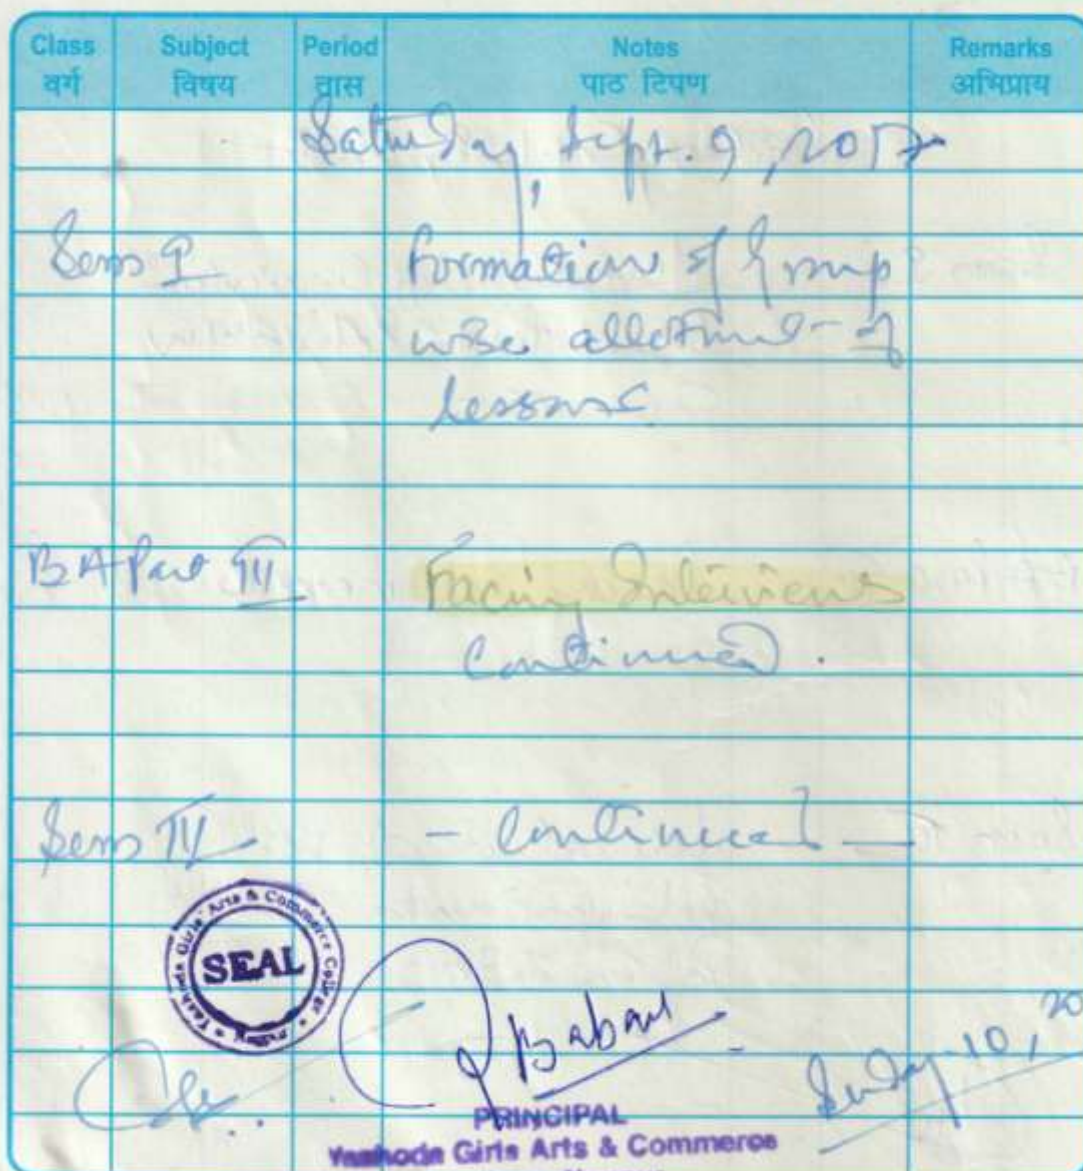 Class Subject Period Notes Remarks
वर्ग विषय तास पाठ टिपण अभिप्राय
Saturday, Sept. 9, 2017
Sem I Formation of Group
wise allotment of
lessons
B A Part III Facing Interviews
Continued.
Sem IV - Continued -
Yashoda Girls' Arts & Commerce College
SEAL
Sunday 10, 20
PRINCIPAL
Yashoda Girls Arts & Commerce